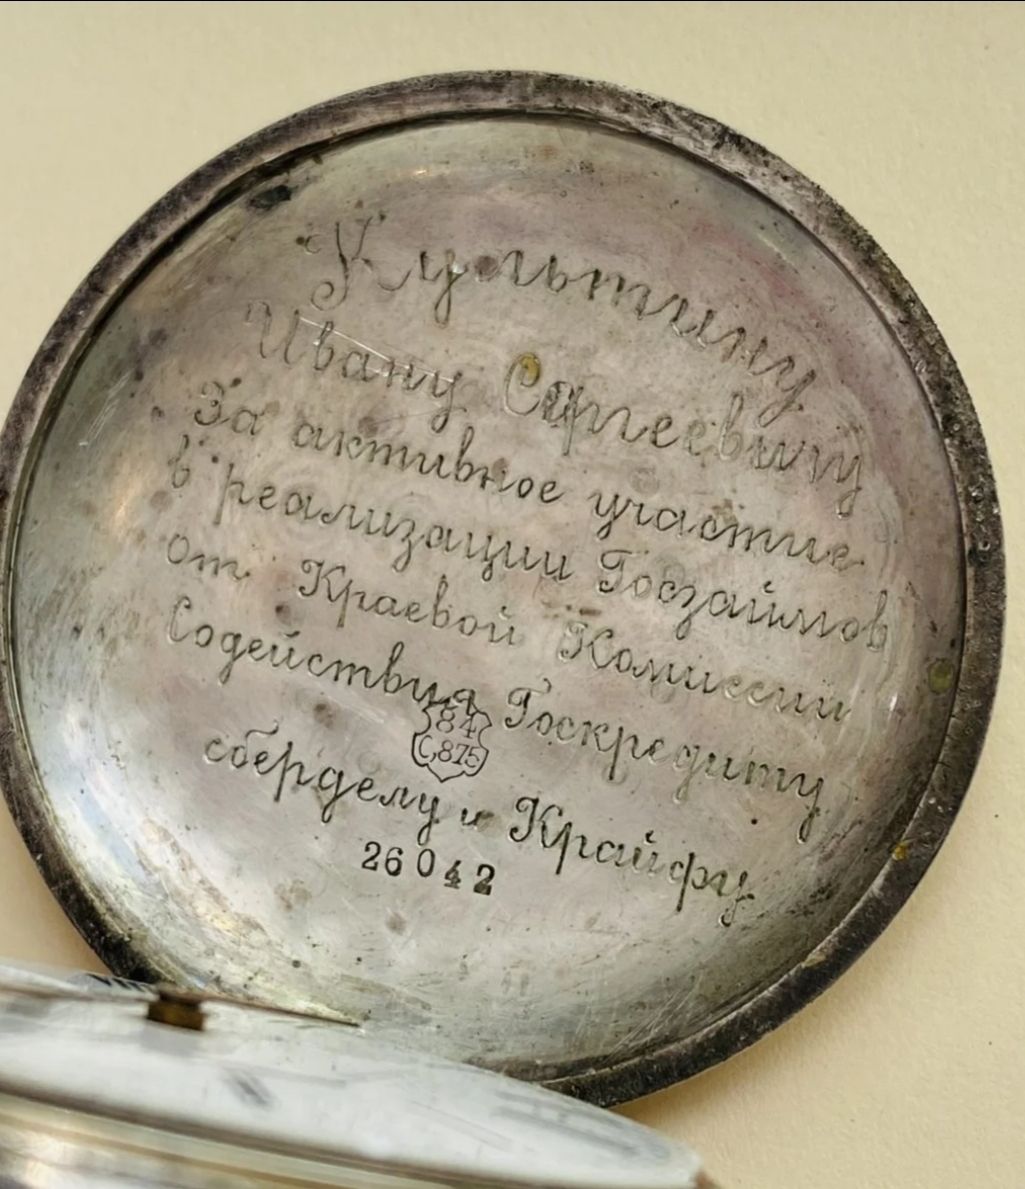 Культину
Ивану Сергеевичу
За активное участие
в реализации Госзаймов
От Краевой Комиссии
Содействия Госкредиту
84
С,875
сберделу и Крайфу
26042